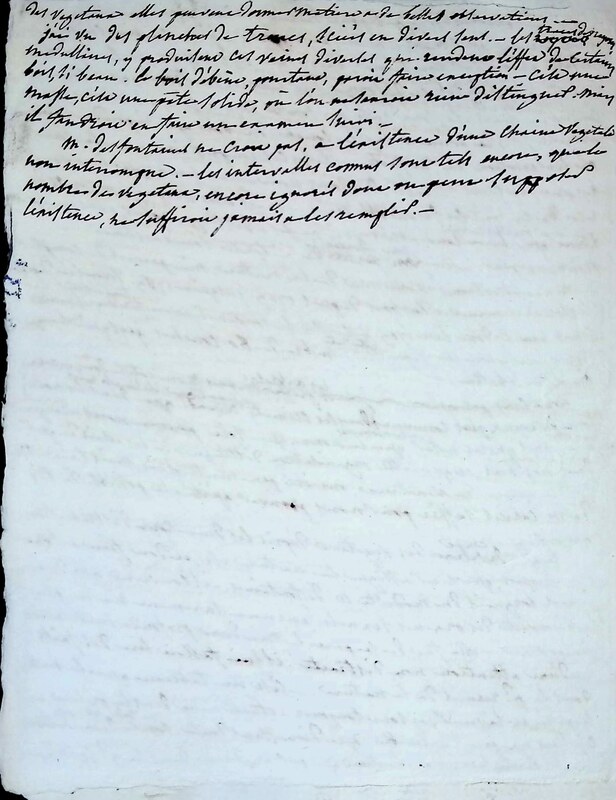 des vegetaux elles peuvent donner matiere a de belles observations. —
j'ai vu des planches de troncs, sciées en divers sens. — les
medullaires, y produisent ces veines diverses qui rendent l'effet de certains
bois, si beau. le bois d'ébene, pourtant, paroit faire exception — c'est une
masse, c'est une pâte solide, où l'on ne sauroit rien distinguer. mais
il faudroit en faire un examen suivi. —
M. desfontaines ne croit pas, a l'existence d'une chaine vegetale
non interrompue. — les intervalles connus sont tels encore, que le
nombre des vegetaux, encore ignorés dont on peut supposer
l'existence, ne suffiroit jamais a les remplir. —